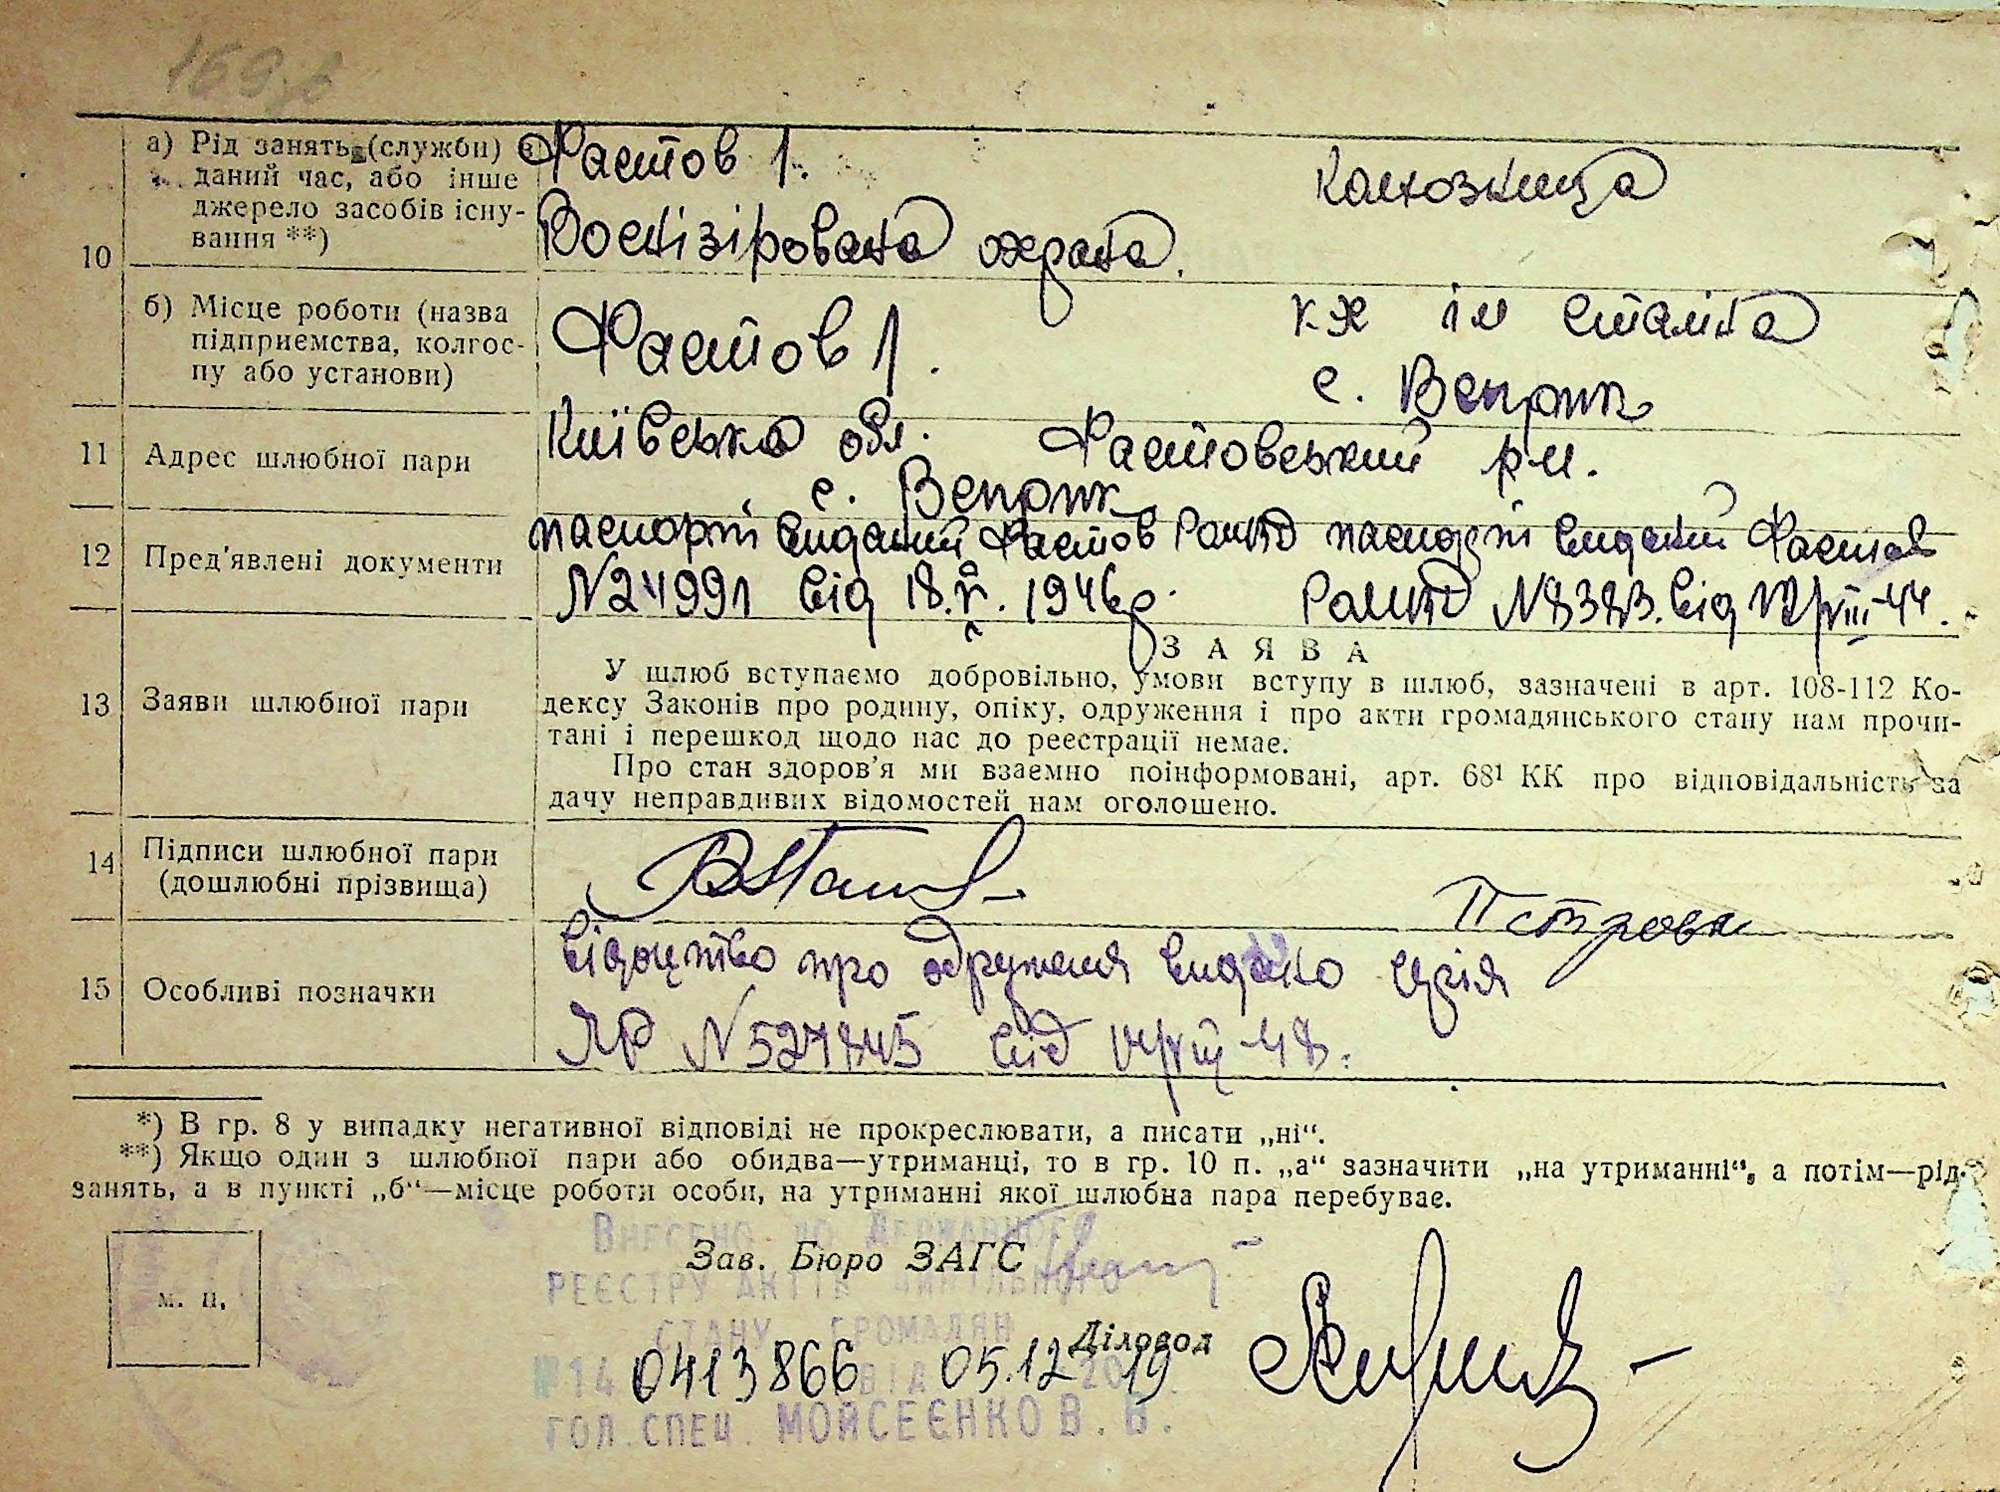 169
а) Рід занять (служби) в Фастов 1. Колхозниця
даний час, або інше
джерело засобів існу- Воєнізірована охрана.
вання **)
10
б) Місце роботи (назва Фастов 1. кх ім Сталіна
підприємства, колгос-
пу або установи) с. Веприк
11 Адрес шлюбної пари Київська обл. Фастовський р-н.
с. Веприк
12 Пред'явлені документи паспорт виданий Фастов паспорт виданий Фастов
№24991 від 18. 1946р. від
З А Я В А
13 Заяви шлюбної пари
У шлюб вступаємо добровільно, умови вступу в шлюб, зазначені в арт. 108-112 Ко-
дексу Законів про родину, опіку, одруження і про акти громадянського стану нам прочи-
тані і перешкод щодо нас до реєстрації немає.
Про стан здоров'я ми взаємно поінформовані, арт. 68¹ КК про відповідальність за
дачу неправдивих відомостей нам оголошено.
14 Підписи шлюбної пари
(дошлюбні прізвища)
15 Особливі позначки відоцтво про одруження видано серія
ЯР № від
*) В гр. 8 у випадку негативної відповіді не прокреслювати, а писати „ні“.
**) Якщо один з шлюбної пари або обидва—утриманці, то в гр. 10 п. „а“ зазначити „на утриманні“, а потім—рід
занять, а в пункті „б“—місце роботи особи, на утриманні якої шлюбна пара перебуває.
Внесено до Державного
Зав. Бюро ЗАГС
реєстру актів цивільного
м. п.
стану громадян
Діловод
№14 0413866 від 05.12 2019
гол. спец. Мойсеєнко В. В.